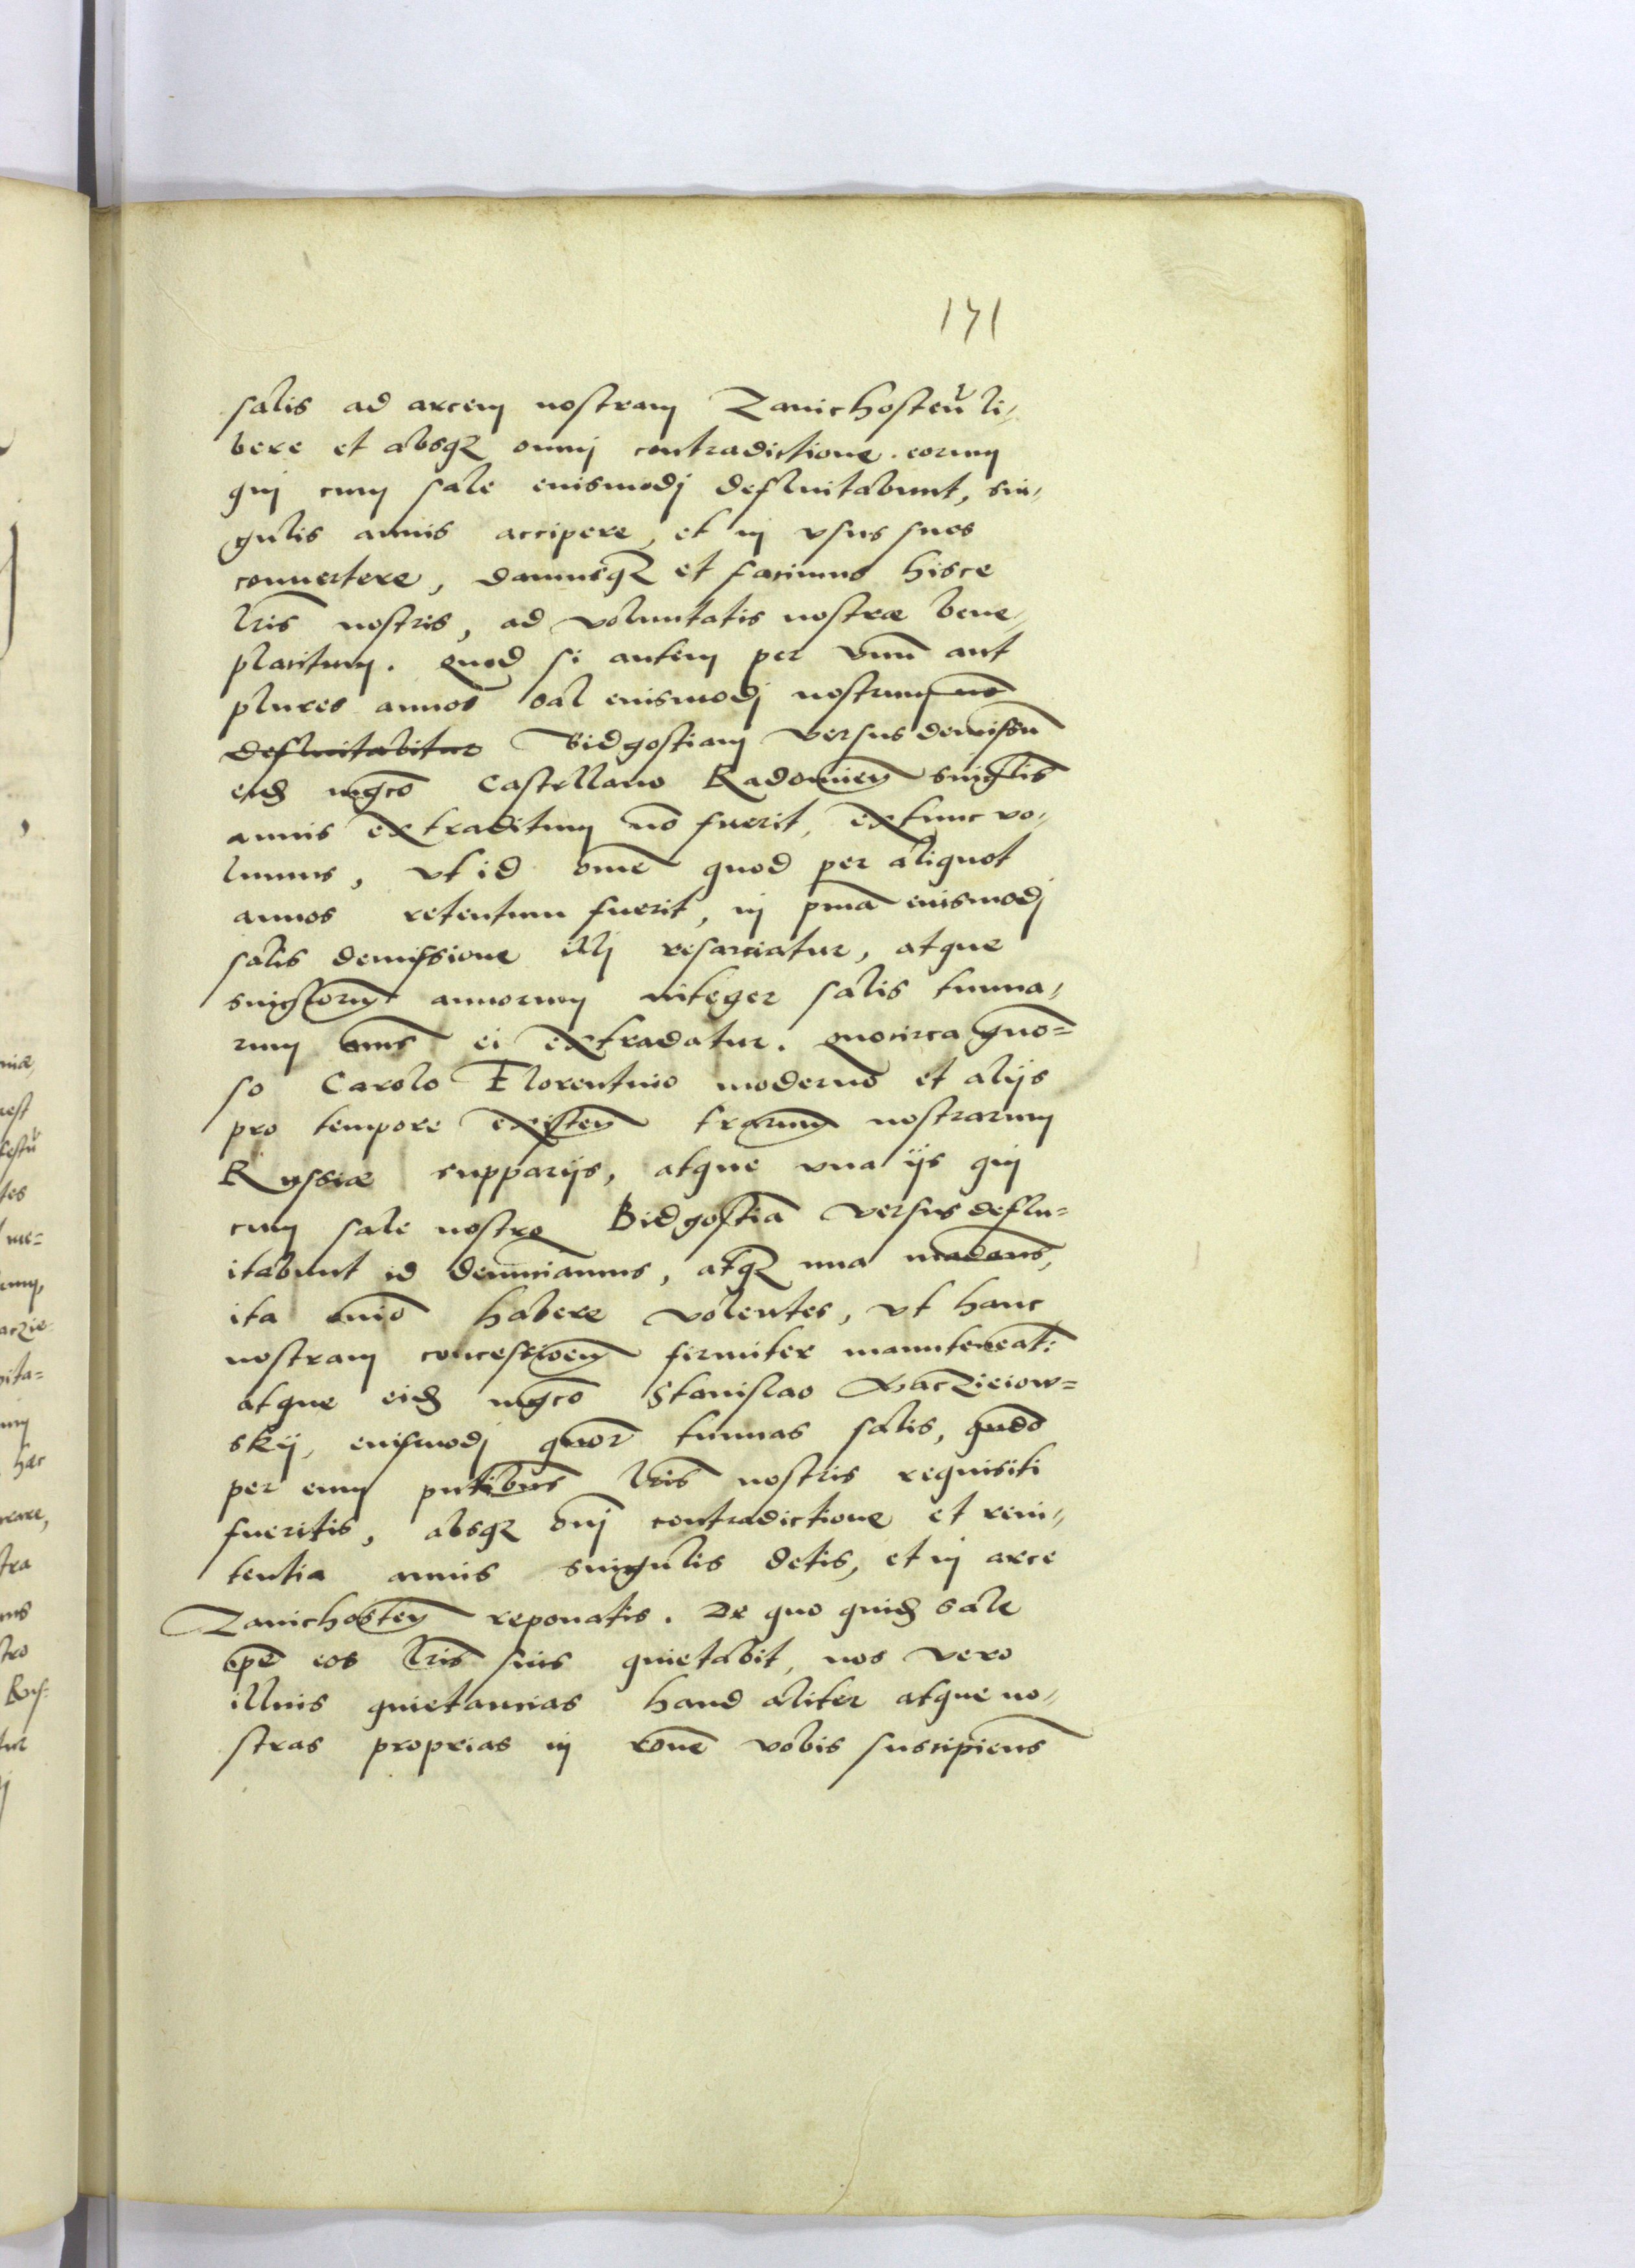 171
salis ad arcem nostram Zanichosteñ li-
bere et absq3 omnj contradictione eorum
quj cum sale euismodj defluitabunt, sin-
gulis annis accipere, et in vsus suos
conuertere, damusq3 et facimus hisce
lr̃is nostris, ad voluntatis nostræ bene-
placitum. Quod si autem per vnũ aut
plures annos sal euismodj nostrum no
defluitabitur Bidgostiam versus demissũ
eid mgco Castellano Radomieñ singlis
annis extraditum nõ fuerit, extunc vo-
lumus, vt id omẽ quod per aliquot
annos retentum fuerit, in pma euismodj
salis demissione illj resarciatur, atque
singlorum annorum integer salis tunna-
rum nus ei extradatur. Quocirca gño=
so Carolo Florentino moderno et alijs
pro tempore exñten trarum nostrarum
Russiæ supparijs, atque vna ijs quj
cum sale nostro Bidgostiã versus deflu=
itabunt id denunciamus, atq3 una mãdams,
ita omĩo habere volentes, vt hanc
nostram concessioem firmiter manuteneat:
atque eid mgco Stanislao Maczieiow=
skij, euismodj quor tunnas salis, qũdo
per eum pñtibus lr̃is nostris requisiti
fueritis, absq3 õnj contradictione et reni-
tentia annis singulis detis, et in arce
Zanichosteñ reponatis. De quo quid sale
ipẽ eos lr̃is suis quietabit, nos vero
illius quietancias haud aliter atque no-
stras proprias in rõne vobis suscipiems